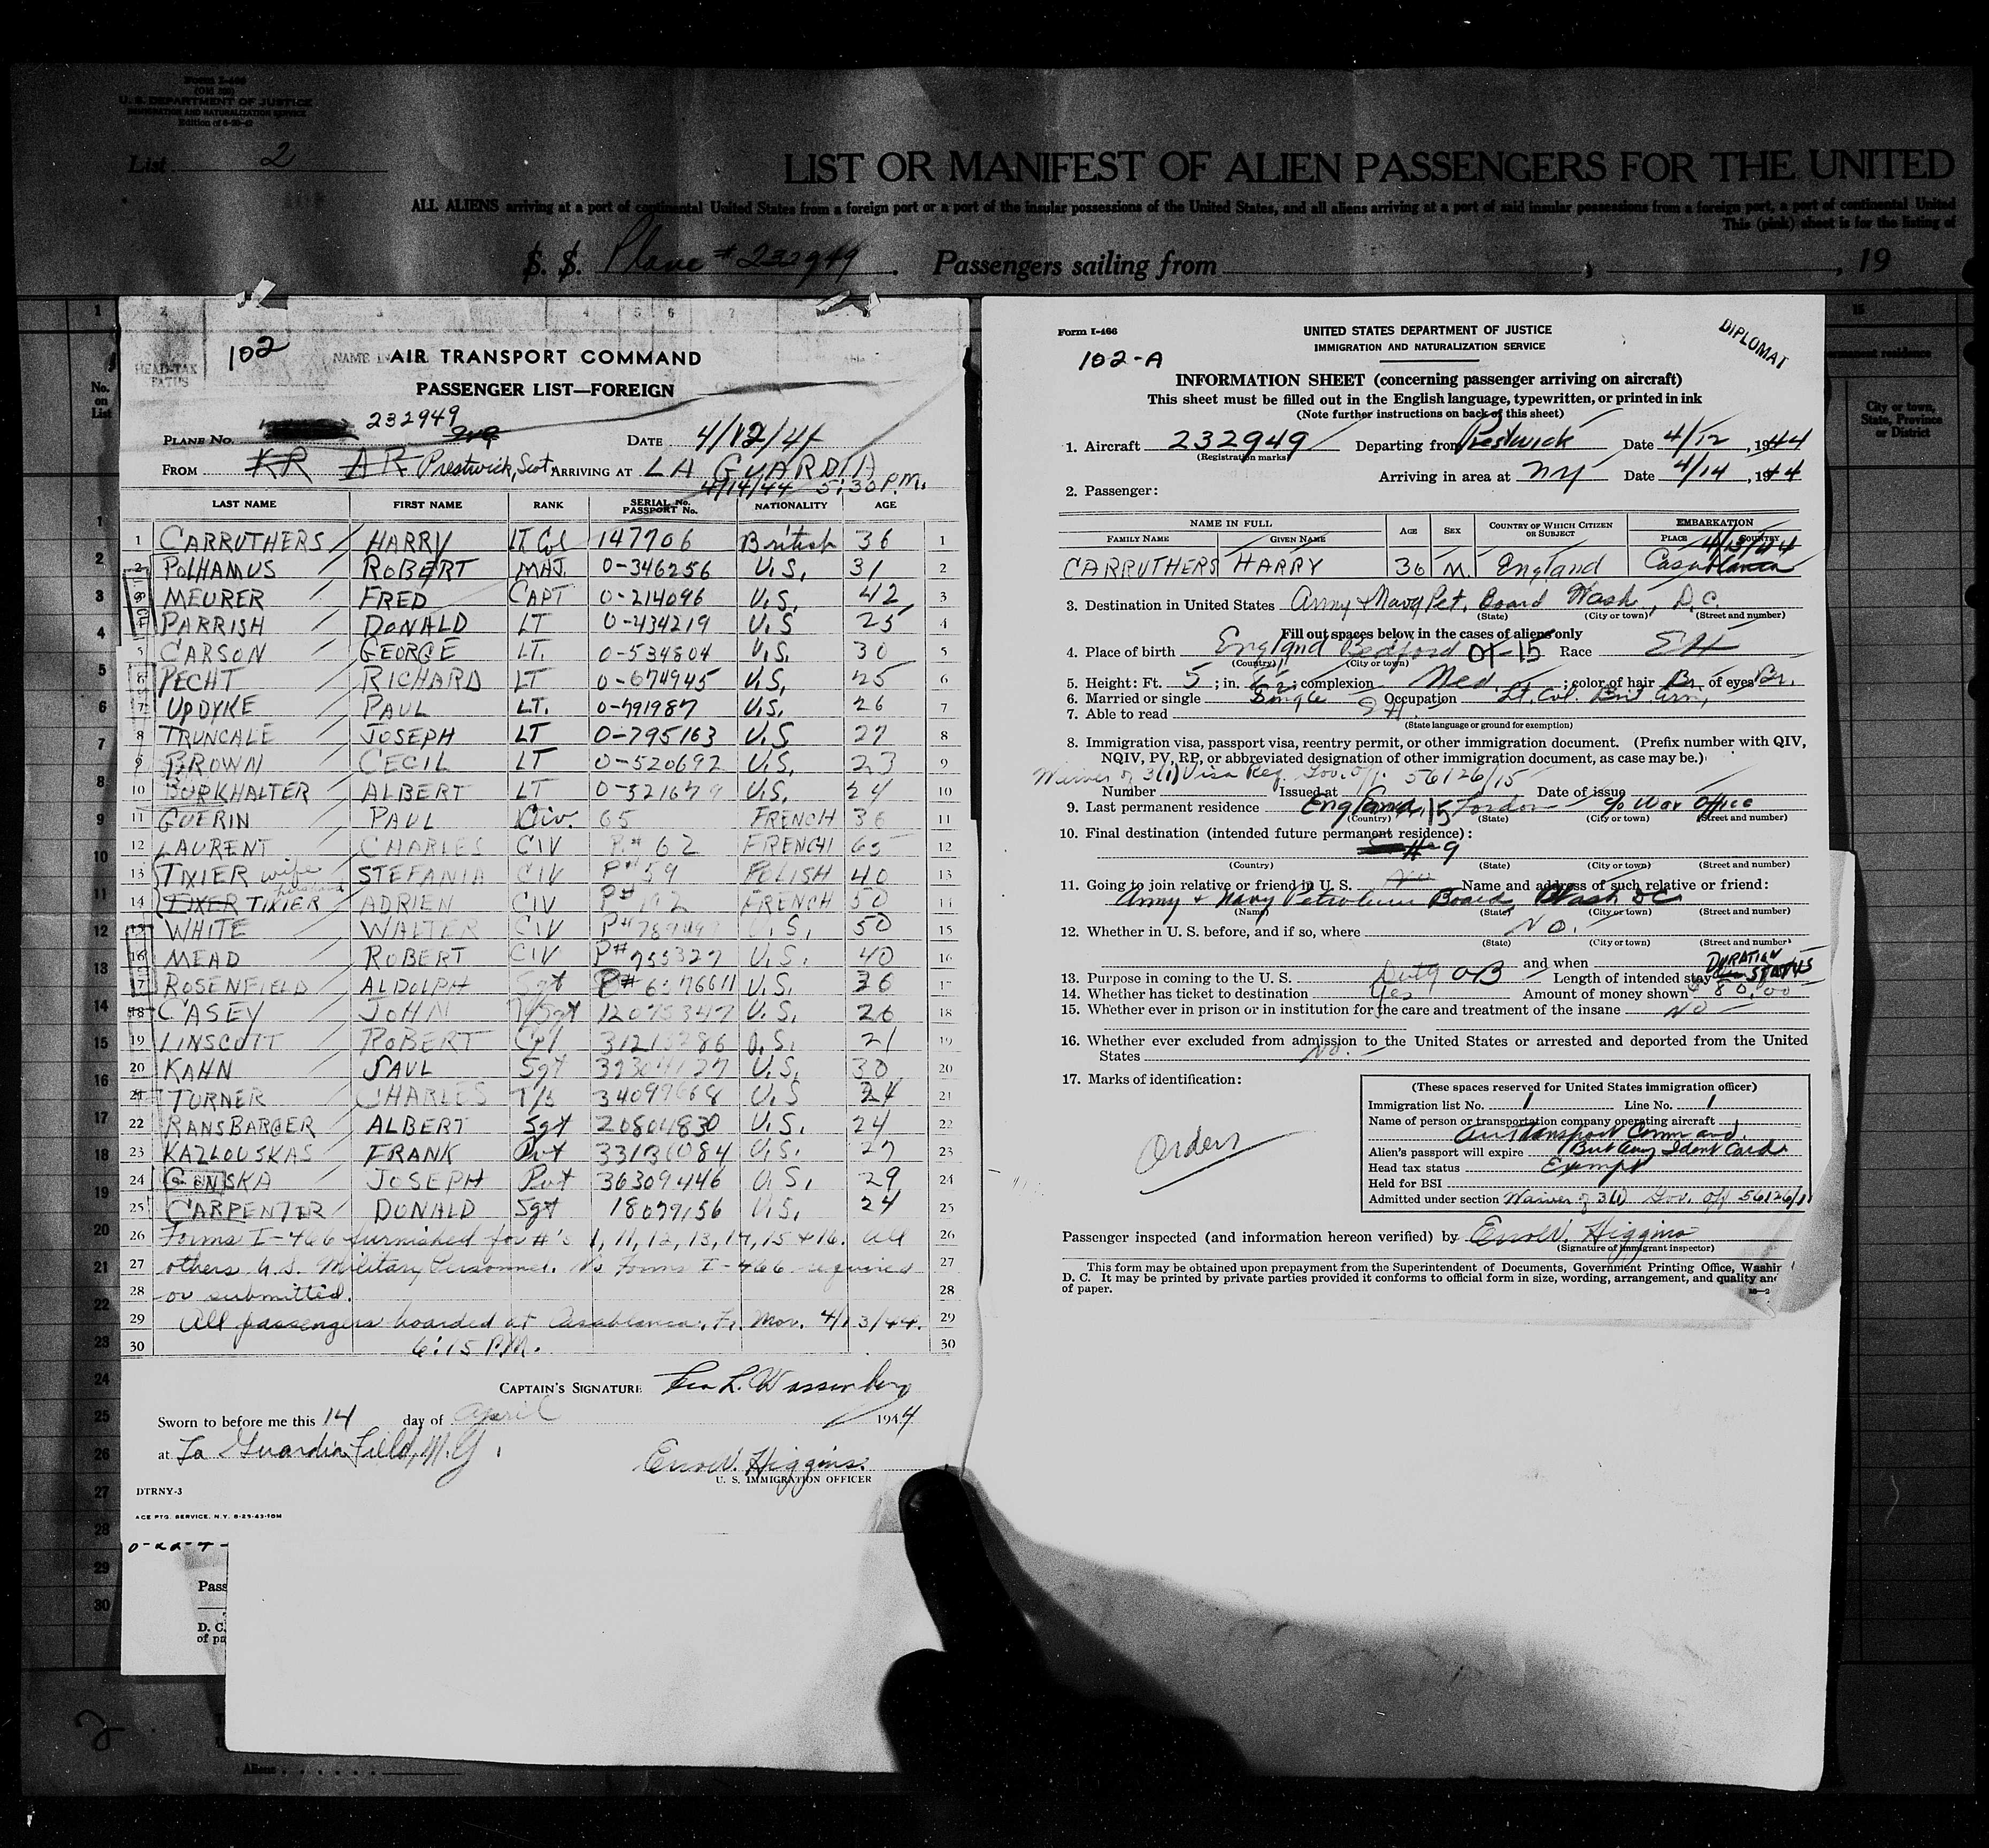 Form I-466
(Old 500)
U. S. DEPARTMENT OF JUSTICE
IMMIGRATION AND NATURALIZATION SERVICE
List 2
LIST OR MANIFEST OF ALIEN PASSENGERS FOR THE UNITED
ALL ALIENS arriving at a port of continental United States from a foreign port or a port of the insular possessions of the United States, and all aliens arriving at a port of said insular possessions from a foreign port, a port of continental United
This (pink) sheet is for the listing of
S. S. Plane # 232949. Passengers sailing from , , 19
102
AIR TRANSPORT COMMAND
PASSENGER LIST—FOREIGN
PLANE NO. 232949 DATE 4/12/44
FROM KR AR Prestwick, Scot. ARRIVING AT LA GUARDIA
4/14/44 5:30 P.M.
LAST NAME FIRST NAME RANK SERIAL No. PASSPORT No. NATIONALITY AGE
1 CARRUTHERS HARRY LT Col 147706 British 36 1
2 POLHAMUS ROBERT MAJ. 0-346256 U.S. 31 2
3 MEURER FRED CAPT 0-214096 U.S. 42 3
4 PARRISH DONALD LT 0-434219 U.S 25 4
5 CARSON GEORGE LT. 0-534804 U.S. 30 5
6 PECHT RICHARD LT 0-674945 U.S. 25 6
7 UPDYKE PAUL LT. 0-791987 U.S. 26 7
8 TRUNCALE JOSEPH LT 0-795163 U.S 27 8
9 BROWN CECIL LT 0-520692 U.S. 23 9
10 BURKHALTER ALBERT LT U.S. 24 10
11 GUERIN PAUL Civ. 65 FRENCH 36 11
12 LAURENT CHARLES CIV P# 62 FRENCH 65 12
13 TIXIER wife STEFANIA CIV P# 59 POLISH 40 13
14 TIXIER husband ADRIEN CIV P# FRENCH 50 14
15 WHITE WALTER CIV U.S. 50 15
16 MEAD ROBERT CIV P# 955327 U.S. 40 16
17 ROSENFIELD ALDOLPH Sgt U.S. 26 17
18 CASEY JOHN T/Sgt 12075347 U.S. 26 18
19 LINSCOTT ROBERT Cpl U.S. 21 19
20 KAHN SAUL Sgt U.S. 30 20
21 TURNER CHARLES T/5 34099668 U.S 24 21
22 RANSBARGER ALBERT Sgt 20804830 U.S. 24 22
23 KAZLOUSKAS FRANK Pvt 33136084 U.S. 27 23
24 GENSKA JOSEPH Pvt 36309446 U.S. 29 24
25 CARPENTER DONALD Sgt 18079156 U.S. 24 25
26 Forms I-466 furnished for #'s 1, 11, 12, 13, 14, 15 + 16. All 26
27 others U.S. Military Personnel. No Forms I-466 required 27
28 or submitted. 28
29 All passengers boarded at Casablanca, Fr. Mor. 4/13/44. 29
30 6:15 P.M. 30
CAPTAIN'S SIGNATURE
Sworn to before me this 14 day of April 1944
at La Guardia Field, N.Y.
Errol V. Higgins
U. S. IMMIGRATION OFFICER
DTRNY-3
ACE PTG. SERVICE, N.Y. 8-25-43-10M
Pass
D. C.
of pa
2
Form I-466
UNITED STATES DEPARTMENT OF JUSTICE
IMMIGRATION AND NATURALIZATION SERVICE
DIPLOMAT
102-A
INFORMATION SHEET (concerning passenger arriving on aircraft)
This sheet must be filled out in the English language, typewritten, or printed in ink
(Note further instructions on back of this sheet)
1. Aircraft 232949 Departing from Prestwick Date 4/12, 1944
(Registration marks)
Arriving in area at NY Date 4/14, 1944
2. Passenger:
NAME IN FULL AGE SEX COUNTRY OF WHICH CITIZEN OR SUBJECT EMBARKATION
FAMILY NAME GIVEN NAME PLACE COUNTRY
4/13/44
CARRUTHERS HARRY 36 M. England Casablanca
3. Destination in United States Army & Navy Pet. Board Wash., D.C.
(State) (City or town) (Street and number)
Fill out spaces below in the cases of aliens only
4. Place of birth England Bedford 01-15 Race
(Country) (City or town)
5. Height: Ft. 5; in. ; complexion Med. ; color of hair Br. of eyes Br.
6. Married or single Single Occupation Lt. Col. Brit. Army
7. Able to read
(State language or ground for exemption)
8. Immigration visa, passport visa, reentry permit, or other immigration document. (Prefix number with QIV,
NQIV, PV, RP, or abbreviated designation of other immigration document, as case may be.)
Waiver of 3(1) Visa Reg. Gov. Off. 56126/15
Number Issued at Date of issue
9. Last permanent residence England, 15 London c/o War Office
(Country) (State) (City or town) (Street and number)
10. Final destination (intended future permanent residence):
#9
(Country) (State) (City or town) (Street and number)
11. Going to join relative or friend in U. S. No Name and address of such relative or friend:
Army & Navy Petroleum Board, Wash DC
(Name) (State) (City or town) (Street and number)
12. Whether in U. S. before, and if so, where No.
(State) (City or town) (Street and number)
and when
DURATION STATUS
13. Purpose in coming to the U. S. Duty OB Length of intended stay
14. Whether has ticket to destination Yes Amount of money shown $80.00
15. Whether ever in prison or in institution for the care and treatment of the insane No
16. Whether ever excluded from admission to the United States or arrested and deported from the United
States No.
17. Marks of identification:
Orders
(These spaces reserved for United States immigration officer)
Immigration list No. 1 Line No. 1
Name of person or transportation company operating aircraft
Air Transport Command
Alien's passport will expire Brit Army Ident Card
Head tax status Exempt
Held for BSI
Admitted under section Waiver of 3(1) Gov. Off 56126/1
Passenger inspected (and information hereon verified) by Errol V. Higgins
(Signature of immigrant inspector)
This form may be obtained upon prepayment from the Superintendent of Documents, Government Printing Office, Washin
D. C. It may be printed by private parties provided it conforms to official form in size, wording, arrangement, and quality and
of paper.
16—2
City or town,
State, Province
or District